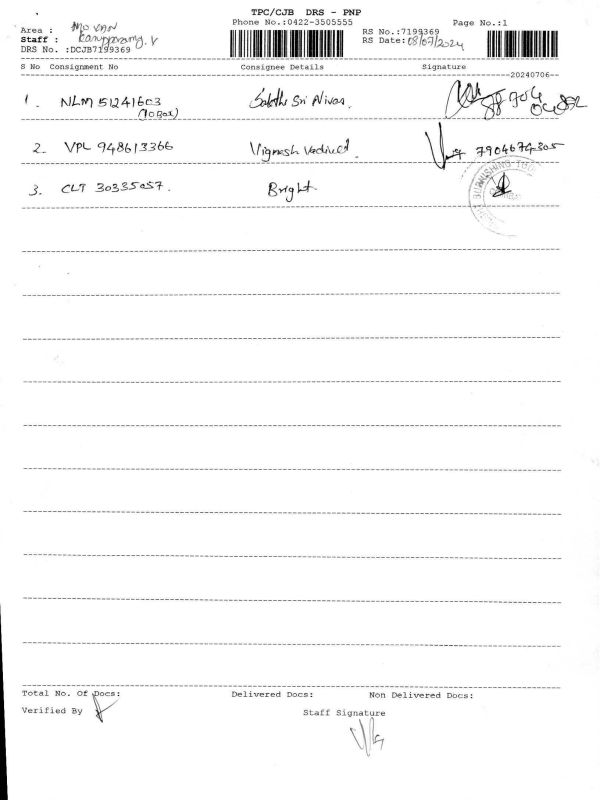 TPC/CJB DRS - PNP
Phone No.:0422-3505555
Page No.:1
Area : MO VAN
Staff : V
DRS No. :DCJB7199369
RS No.:7199369
RS Date: 08/07/2024
S No Consignment No Consignee Details Signature
20240706
1. NLM 51241603 Sakthi Sri Nivas.
(10 Box)
2. VPL 948613366 Vignesh 7904674305
3. CLT 30335057. Bright.
Total No. Of Docs: Delivered Docs: Non Delivered Docs:
Verified By
Staff Signature